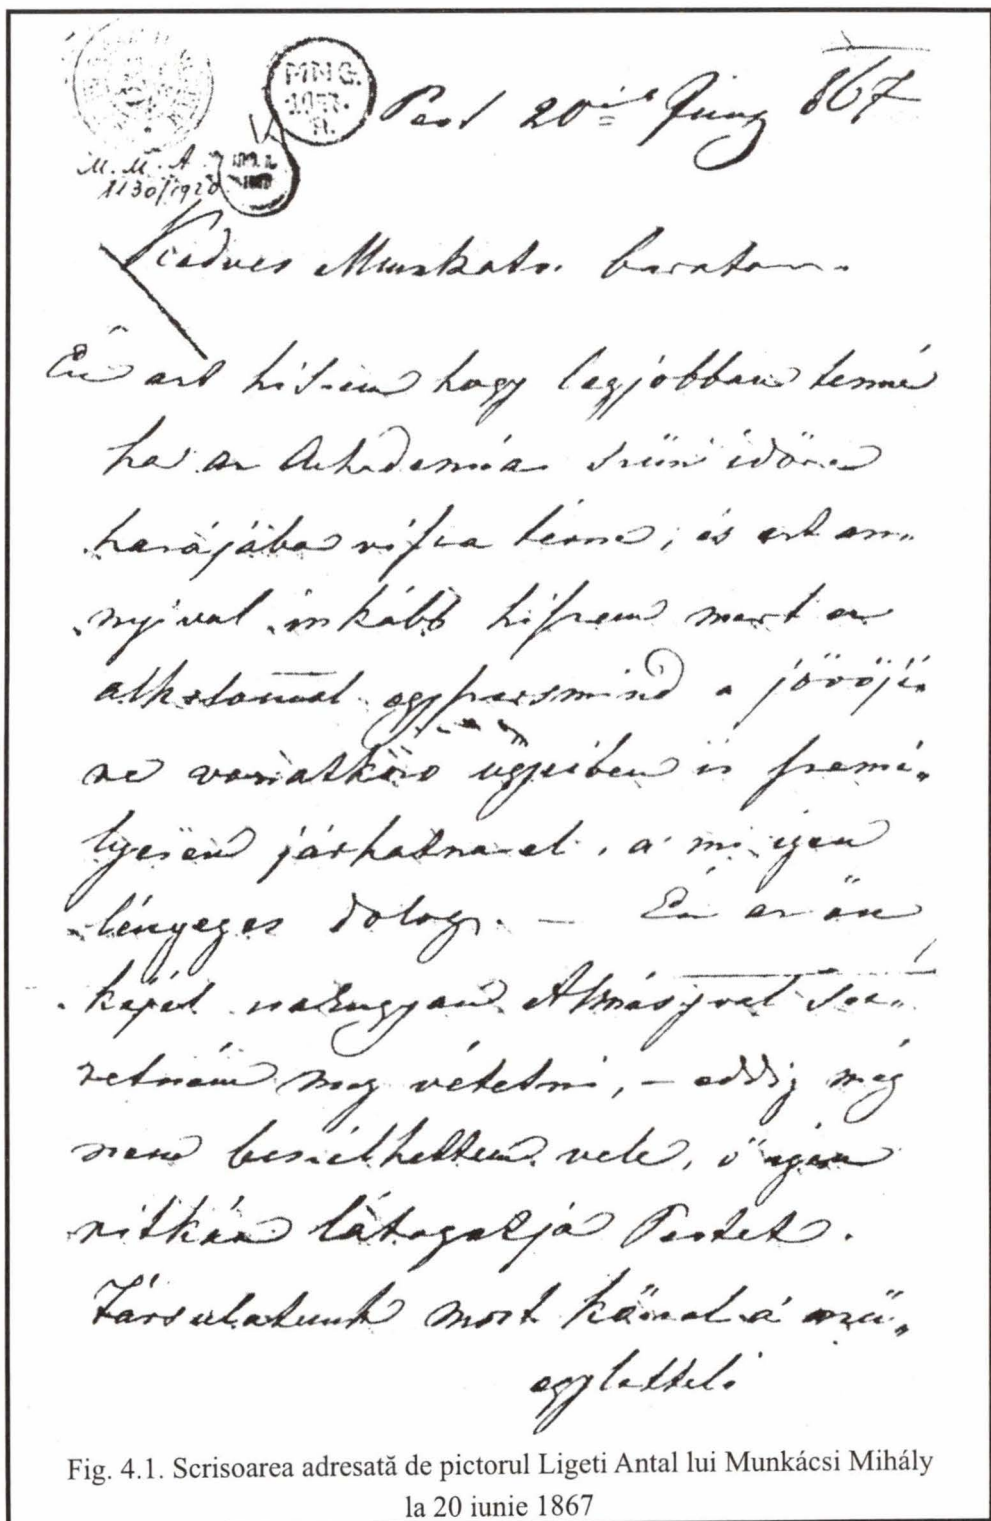 MNG.
Pest 20ik Juny 867
M. M. A.
1130/1920
Kedves Munkatsi baratom.
Én azt hiszem hogy legjobban tenné
ha az Akademia szün időre
hazájába vissza térne, és ezt an„
nyival inkább hiszem mert ez
alkalommal egyszersmind a jövőjé„
re vonatkozó ügyeiben is szemé„
lyesen járhatna el, a mi igen
lényeges dolog. — Én az ön
képét Almásyval sze„
retném meg vétetni, — eddig még
nem beszélhettem vele, ő igen
ritkán látogatja Pestet.
Társulatunk most a mű„
egyletteli
Fig. 4.1. Scrisoarea adresată de pictorul Ligeti Antal lui Munkácsi Mihály
la 20 iunie 1867